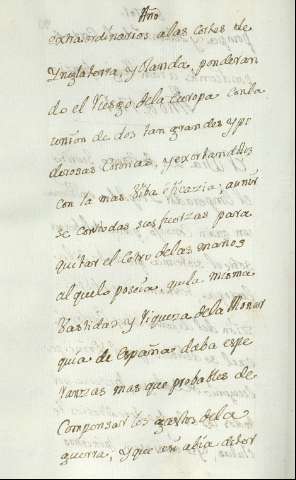 Año
extraordinarios a las cortes de
Ynglaterra, y Olanda, ponderan
do el Riesgo de la Europa con la
union de dos tan grandes y po
derosas Coronas, y exortandolos
con la mas viba eficazia, a unir
se con todas sus fuerzas para
quitar el Cetro de las manos
al que le poseia, que la misma
Bastidas y Riqueza de la Monar
quia de España daba espe
ranzas mas que probables de
Compensar los gastos de la
guerra, y que